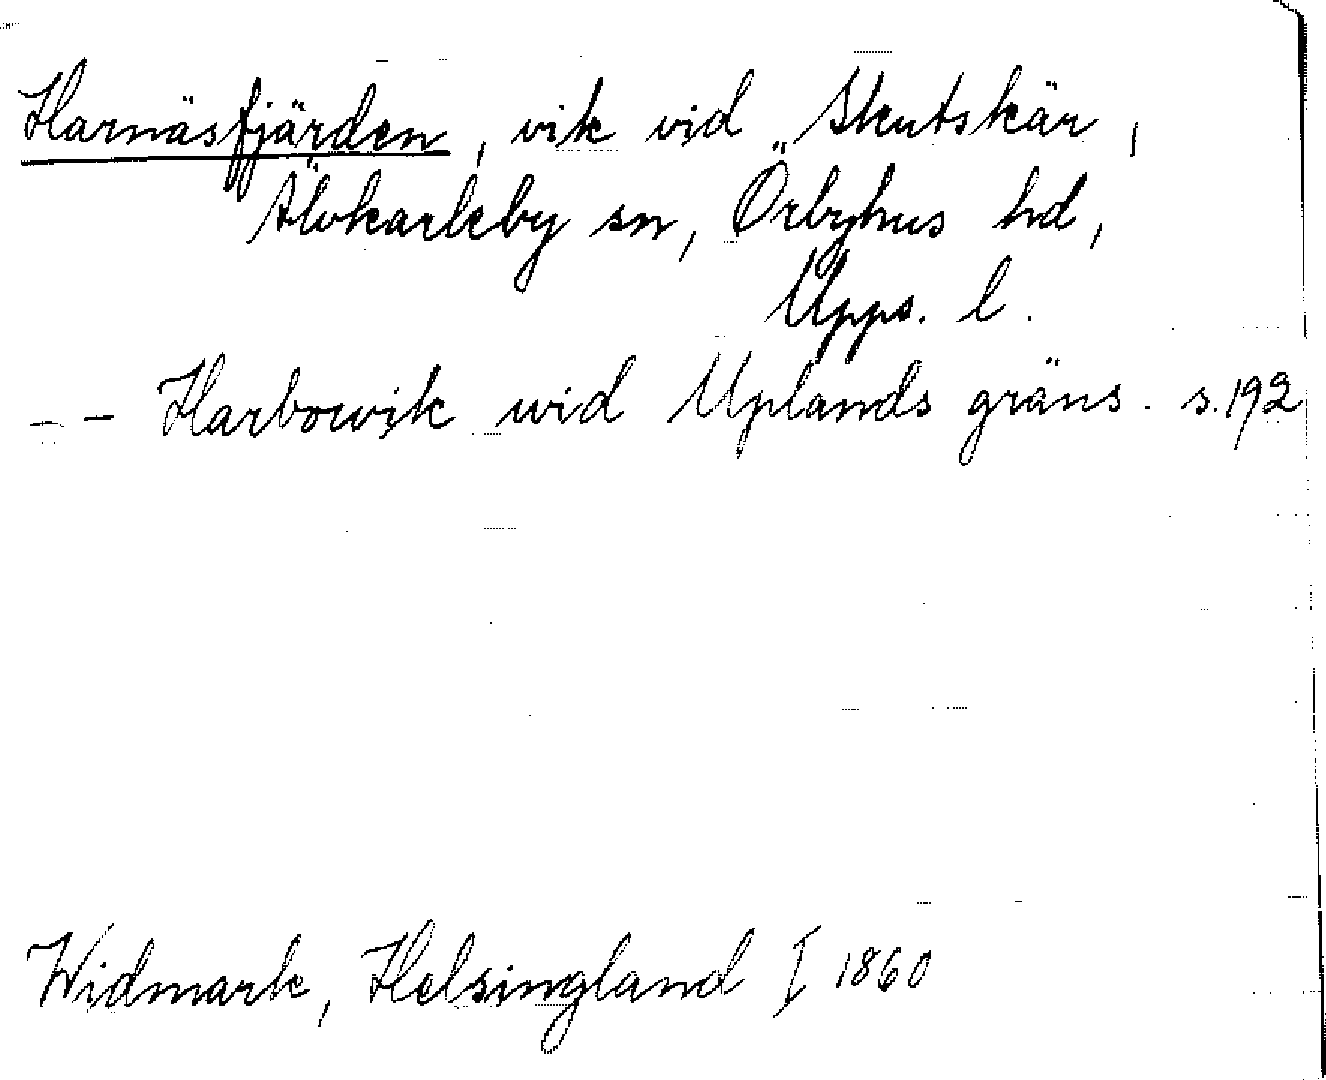 Harnäsfjärden, vik vid Skutskär,
Älvkarleby sn, Örbyhus hd,
Upps. l.
– – Harbowik wid Uplands gräns. s. 192
Widmark, Helsingland I 1860